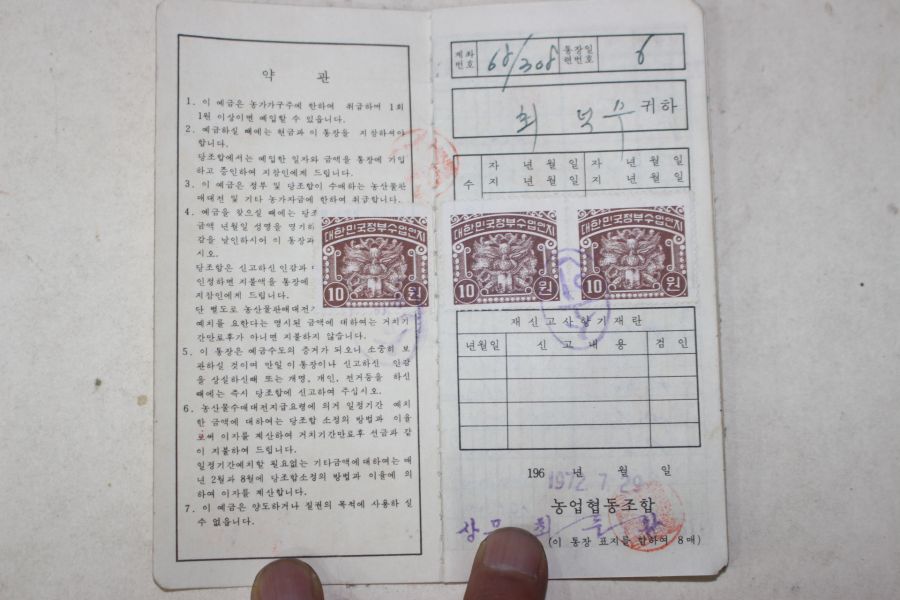 약 관
1. 이 예금은 농가가구주에 한하여 취급하며 1회
1원 이상이면 예입할 수 있읍니다.
2. 예금하실 때에는 현금과 이 통장을 지참하셔야
합니다.
당조합에서는 예입한 일자와 금액을 통장에 기입
하고 증인하여 지참인에게 드립니다.
3. 이 예금은 정부 및 당조합이 수매하는 농산물판
매대전 및 기타 농가자금에 한하여 취급합니다.
4. 예금을 찾으실 때에는 당조
금액 년월일 성명을 명기하
감을 날인하시어 이 통장과
시오.
당조합은 신고하신 인감과
인정하면 지불액을 통장에
지참인에게 드립니다.
단 별도로 농산물판매대전
예치를 요한다는 명시된 금액에 대하여는 거치기
간만료후가 아니면 지불하지 않습니다.
5. 이 통장은 예금수도의 증거가 되오니 소중히 보
관하실 것이며 만일 이 통장이나 신고하신 인감
을 상실하신때 또는 개명, 개인, 전거등을 하신
때에는 즉시 당조합에 신고하여 주십시오.
6. 농산물수매대전지급요령에 의거 일정기간 예치
한 금액에 대하여는 당조합 소정의 방법과 이율
로써 이자를 계산하여 거치기간만료후 선급과 같
이 지불하여 드립니다.
일정기간예치할 필요없는 기타금액에 대하여는 매
년 2월과 8월에 당조합소정의 방법과 이율에 의
하여 이자를 계산합니다.
7. 이 예금은 양도하거나 질권의 목적에 사용하실
수 없읍니다.
계좌번호 68/308 통장일련번호 6
최 덕 수 귀하
자 년 월 일 자 년 월 일
수 지 년 월 일 지 년 월 일
대한민국정부수입인지 대한민국정부수입인지 대한민국정부수입인지
10 원 10 원 10 원
재신고사항기재란
년월일 신고내용 검인
196 년 월 일
1972.7.29
농업협동조합
상무
(이 통장 표지를 합하여 8매)